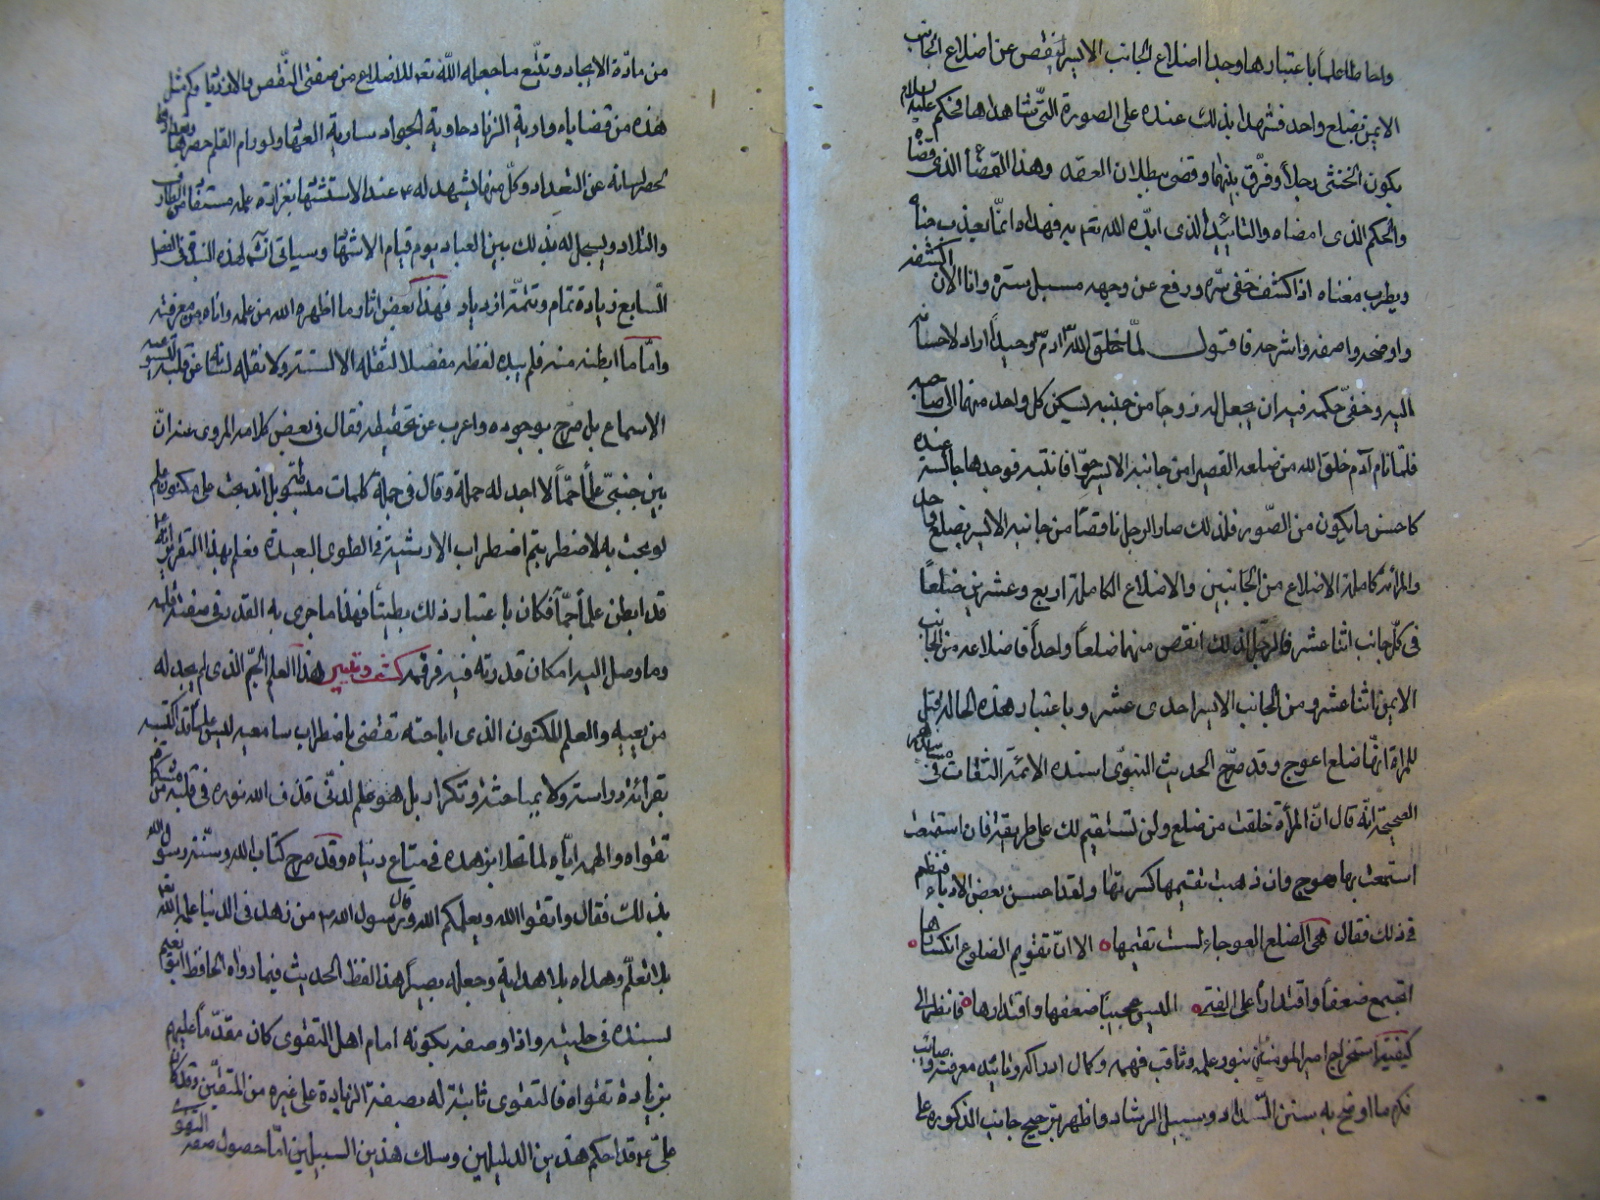 واحاط علماً باعتبارها وجد اضلاع الجانب الايسر تنقص عن اضلاع الجانب
الايمن بضلع واحد فشهد بذلك عنده على الصورة التي شاهدها فحكم عليه السلام
بكون الخنثى رجلاً وفرّق بينهما وقضى ببطلان العقد وهذا القضاء الذى قضاه
والحكم الذى امضاه والتاييد الذى ايّده الله تعم به فهداه انما يعذب جناه
ويطرب معناه اذا كشف خفى سرّه ورفع عن وجهه مسبل ستره وانا الان اكشفه
واوضحه واصفه واشرحه فاقول لمّا خلق الله آدم ء وحيداً اراد لاحسانه
اليه وخفىّ حكمه فيه ان يجعل له زوجاً من جنبه ليسكن كل واحد منهما الى صاحبه
فلمّا نام آدم خلق الله من ضلعه القصير من جانبه الايسر حوّا فانتبه فوجدها جالسة عنده
كاحسن ما يكون من الصّور فلذلك صار الرجل ناقصاً من جانبه الايسر بضلع واحد
والمرأة كاملة الاضلاع من الجانبين والاضلاع الكاملة اربع وعشرين ضلعاً
فى كلّ جانب اثنا عشر فالرجل لذلك انقص منها ضلعاً واحداً فاضلاعه من الجانب
الايمن اثنا عشر ومن الجانب الايسر احدى عشر وباعتبار هذه الحالة قيل
للمراة انّها ضلع اعوج وقد صرّح الحديث النبوى اسنده الائمة الثقات فى مسانيدهم
الصحيحة انّه قال انّ المرأة خلقت من ضلع ولن تستقيم لك على طريقة فان استمتعت
استمتعت بها وبها عوج وان ذهبت تقيمها كسرتها ولقد احسن بعض الادباء فنظم
فى ذلك فقال هى الضلع العوجاء لست تقيمها الا انّ تقويم الضلوع انكسارها
اتجمع ضعفاً واقتداراً على الفتى اليس عجيباً ضعفها واقتدارها فانظر الى
كيفية استخراج امير المومنين بنور علمه وثاقب فهمه وكمال ادراكه وتاييد معرفته وصائب
فكره ما اوضح به سنن السّداد وسبيل الرشاد واظهر ترجيح جانب الذكورة على
من مادّة الايجاد وتتبّع ما جعله الله تعم للاضلاع من صفتى النّقص والازدياد وكم مثل
هذه من قضاياه وارية الزناد حاوية الجواد سارية ولو رام القلم حصرها
عن التعداد وكلّ منها يشهد له ء عند الاستشهاد بغزارة علمه
والتلاد ويسجل له بذلك بين العباد يوم قيام الاشهاد وسياتى انشم لهذه النبذة فى الفصل
السّابع زيادة تمام وتتمّة ازدياد فهذا بعض اثار ما اظهره الله من علمه واتاه من معرفته
وامّا ما ابطنه منه فلم يبده لفظه مفصلا لتنقله الالسنة ولا نقله لسانه عن قلبه
الاسماع بل صرّح بوجوده واعرب عن تحقيقه فقال فى بعض كلامه المروى عنه انّ
بين جنبىّ علماً جمّاً لا اجد له حملة وقال فى جملة كلمات مبسوطة بل اندمجت على مكنون علم
لو بحت به لاضطربتم اضطراب الارشية فى الطوى البعيدة فعلم بهذا التقرير انّه
قد ابطن علماً جمّاً فكان باعتبار ذلك بطيناً فهذا ما جرى به القدر فى صفة
وما وصل اليه امكان قدرته فيه فرقمه كشف وتبيين هذا العلم الجمّ الذى لم يجد له
من يعيه والعلم المكنون الذى اباحته تقتضى باضطراب سامعيه ليس علماً قد اكتسبه
بقرائة ودراسة ولا بمباحثة وتكرار بل هو علم لدنّى قذف الله نوره فى قلبه من مشكاة
تقواه والهمه ايّاه لما تحلى بزهده فى متاع دنياه وقد صرح كتاب الله وسنّة رسول الله
بذلك فقال واتقوا الله ويعلمكم الله وقال رسول الله ص من زهد فى الدنيا علمه الله تعم
بلا تعلّم وهداه بلا هداية وجعله بصيراً هذا لفظ الحديث فيما رواه الحافظ ابو نعيم
بسنده فى حليته واذا وصفه بكونه امام اهل التقوى كان مقدّماً عليهم
بزيادة تقواه فالتقوى ثابتة له بصفة الزيادة على غيره من المتقين وقد كان
علىّ ء قد احكم هذين الدليلين وسلك هذين السبيلين امّا حصول صفة التقوى